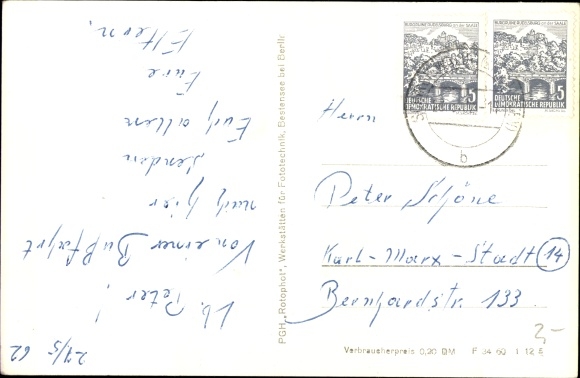 27/5
62
Lb. Peter!
Von einer Busfahrt
nach hier
senden
Euch allen
Eure
Eltern.
PGH „Rotophot", Werkstätten für Fototechnik, Bestensee bei Berlin
BURGRUINE RUDELSBURG AN DER SAALE
5
DEUTSCHE
DEMOKRATISCHE REPUBLIK
BURGRUINE RUDELSBURG AN DER SAALE
5
DEUTSCHE
DEMOKRATISCHE REPUBLIK
b
Herrn
Peter Schöne
Karl-Marx-Stadt 14
Bernhardstr. 133.
2,-
Verbraucherpreis 0,20 DM F 34 60 I 12